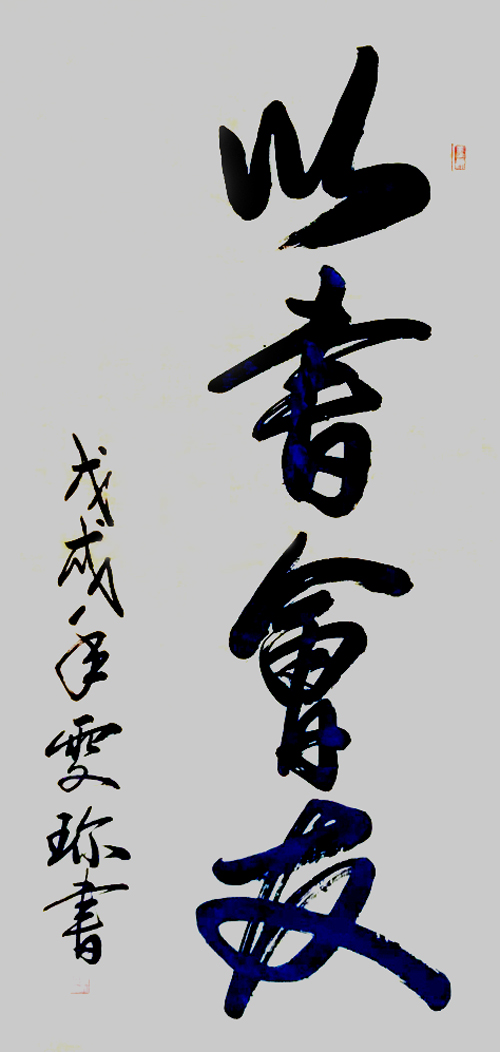 以書會友
戊戌年雯珎書